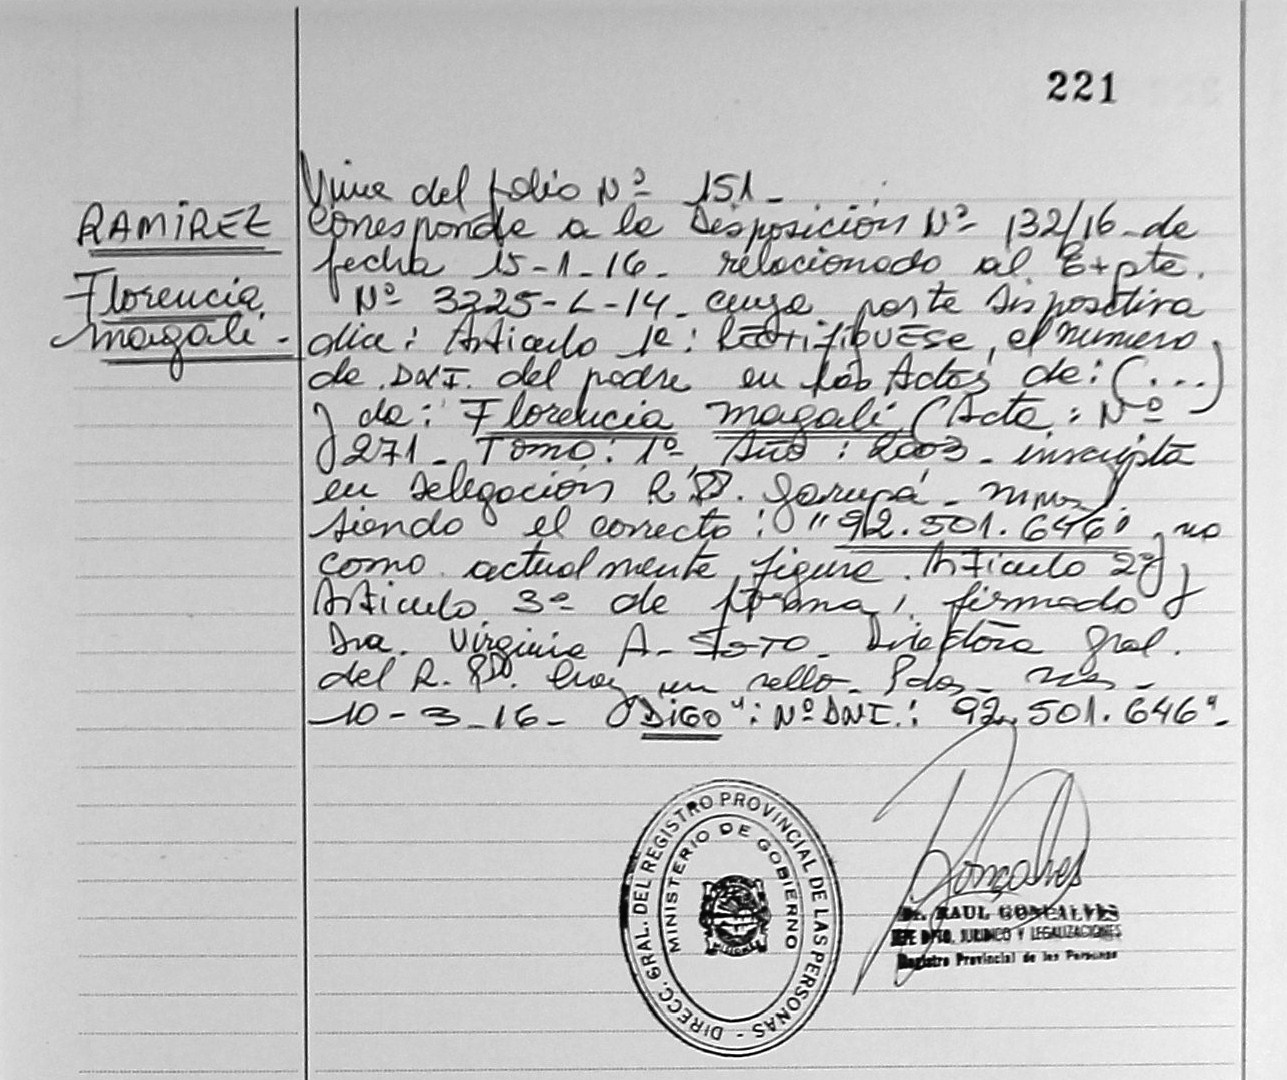 221
RAMÍREZ
Florencia
Magalí -
Viene del folio Nº 151 -
Corresponde a la Disposición Nº 132/16 - de
fecha 15-1-16 - relacionado al Expte.
Nº 3225-L-14 - cuya parte Dispositiva
dice: Artículo 1º: RECTIFIQUESE, el numero
de DNI. del padre en las Actas de: (...)
y de: Florencia Magalí (Acta: Nº
271 - Tomo: 1º Año: 2003 - inscripta
en Delegación R.P. Garupá - Mnes)
siendo el correcto: "92.501.646", no
como actualmente figura. Artículo 2º y
Artículo 3º de forma, firmado
Dra. Virginia A. SOTO - Directora Gral.
del R.P. hay un sello - Pdas - Mnes -
10-3-16 - "DIGO": Nº DNI.: 92.501.646" -
DIRECC. GRAL. DEL REGISTRO PROVINCIAL DE LAS PERSONAS -
MINISTERIO DE GOBIERNO
Goncalves
Dr. RAUL GONCALVES
JEFE DPTO. JURIDICO Y LEGALIZACIONES
Registro Provincial de las Personas